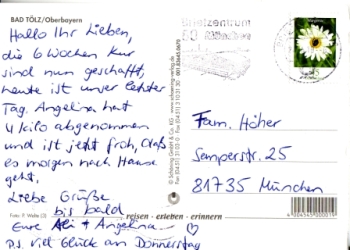 BAD TÖLZ/Oberbayern
Hallo Ihr Lieben,
die 6 Wochen Kur
sind nun geschafft,
heute ist unser letzter
Tag. Angelina hat
4 kilo abgenommen
und ist jetzt froh, dass
es morgen nach Hause
geht.
Liebe Grüße
bis bald
Eure Ali + Angelina
P.S. Viel Glück am Donnerstag
reisen - erleben - erinnern
Fam. Höher
Semperstr. 25
81735 München